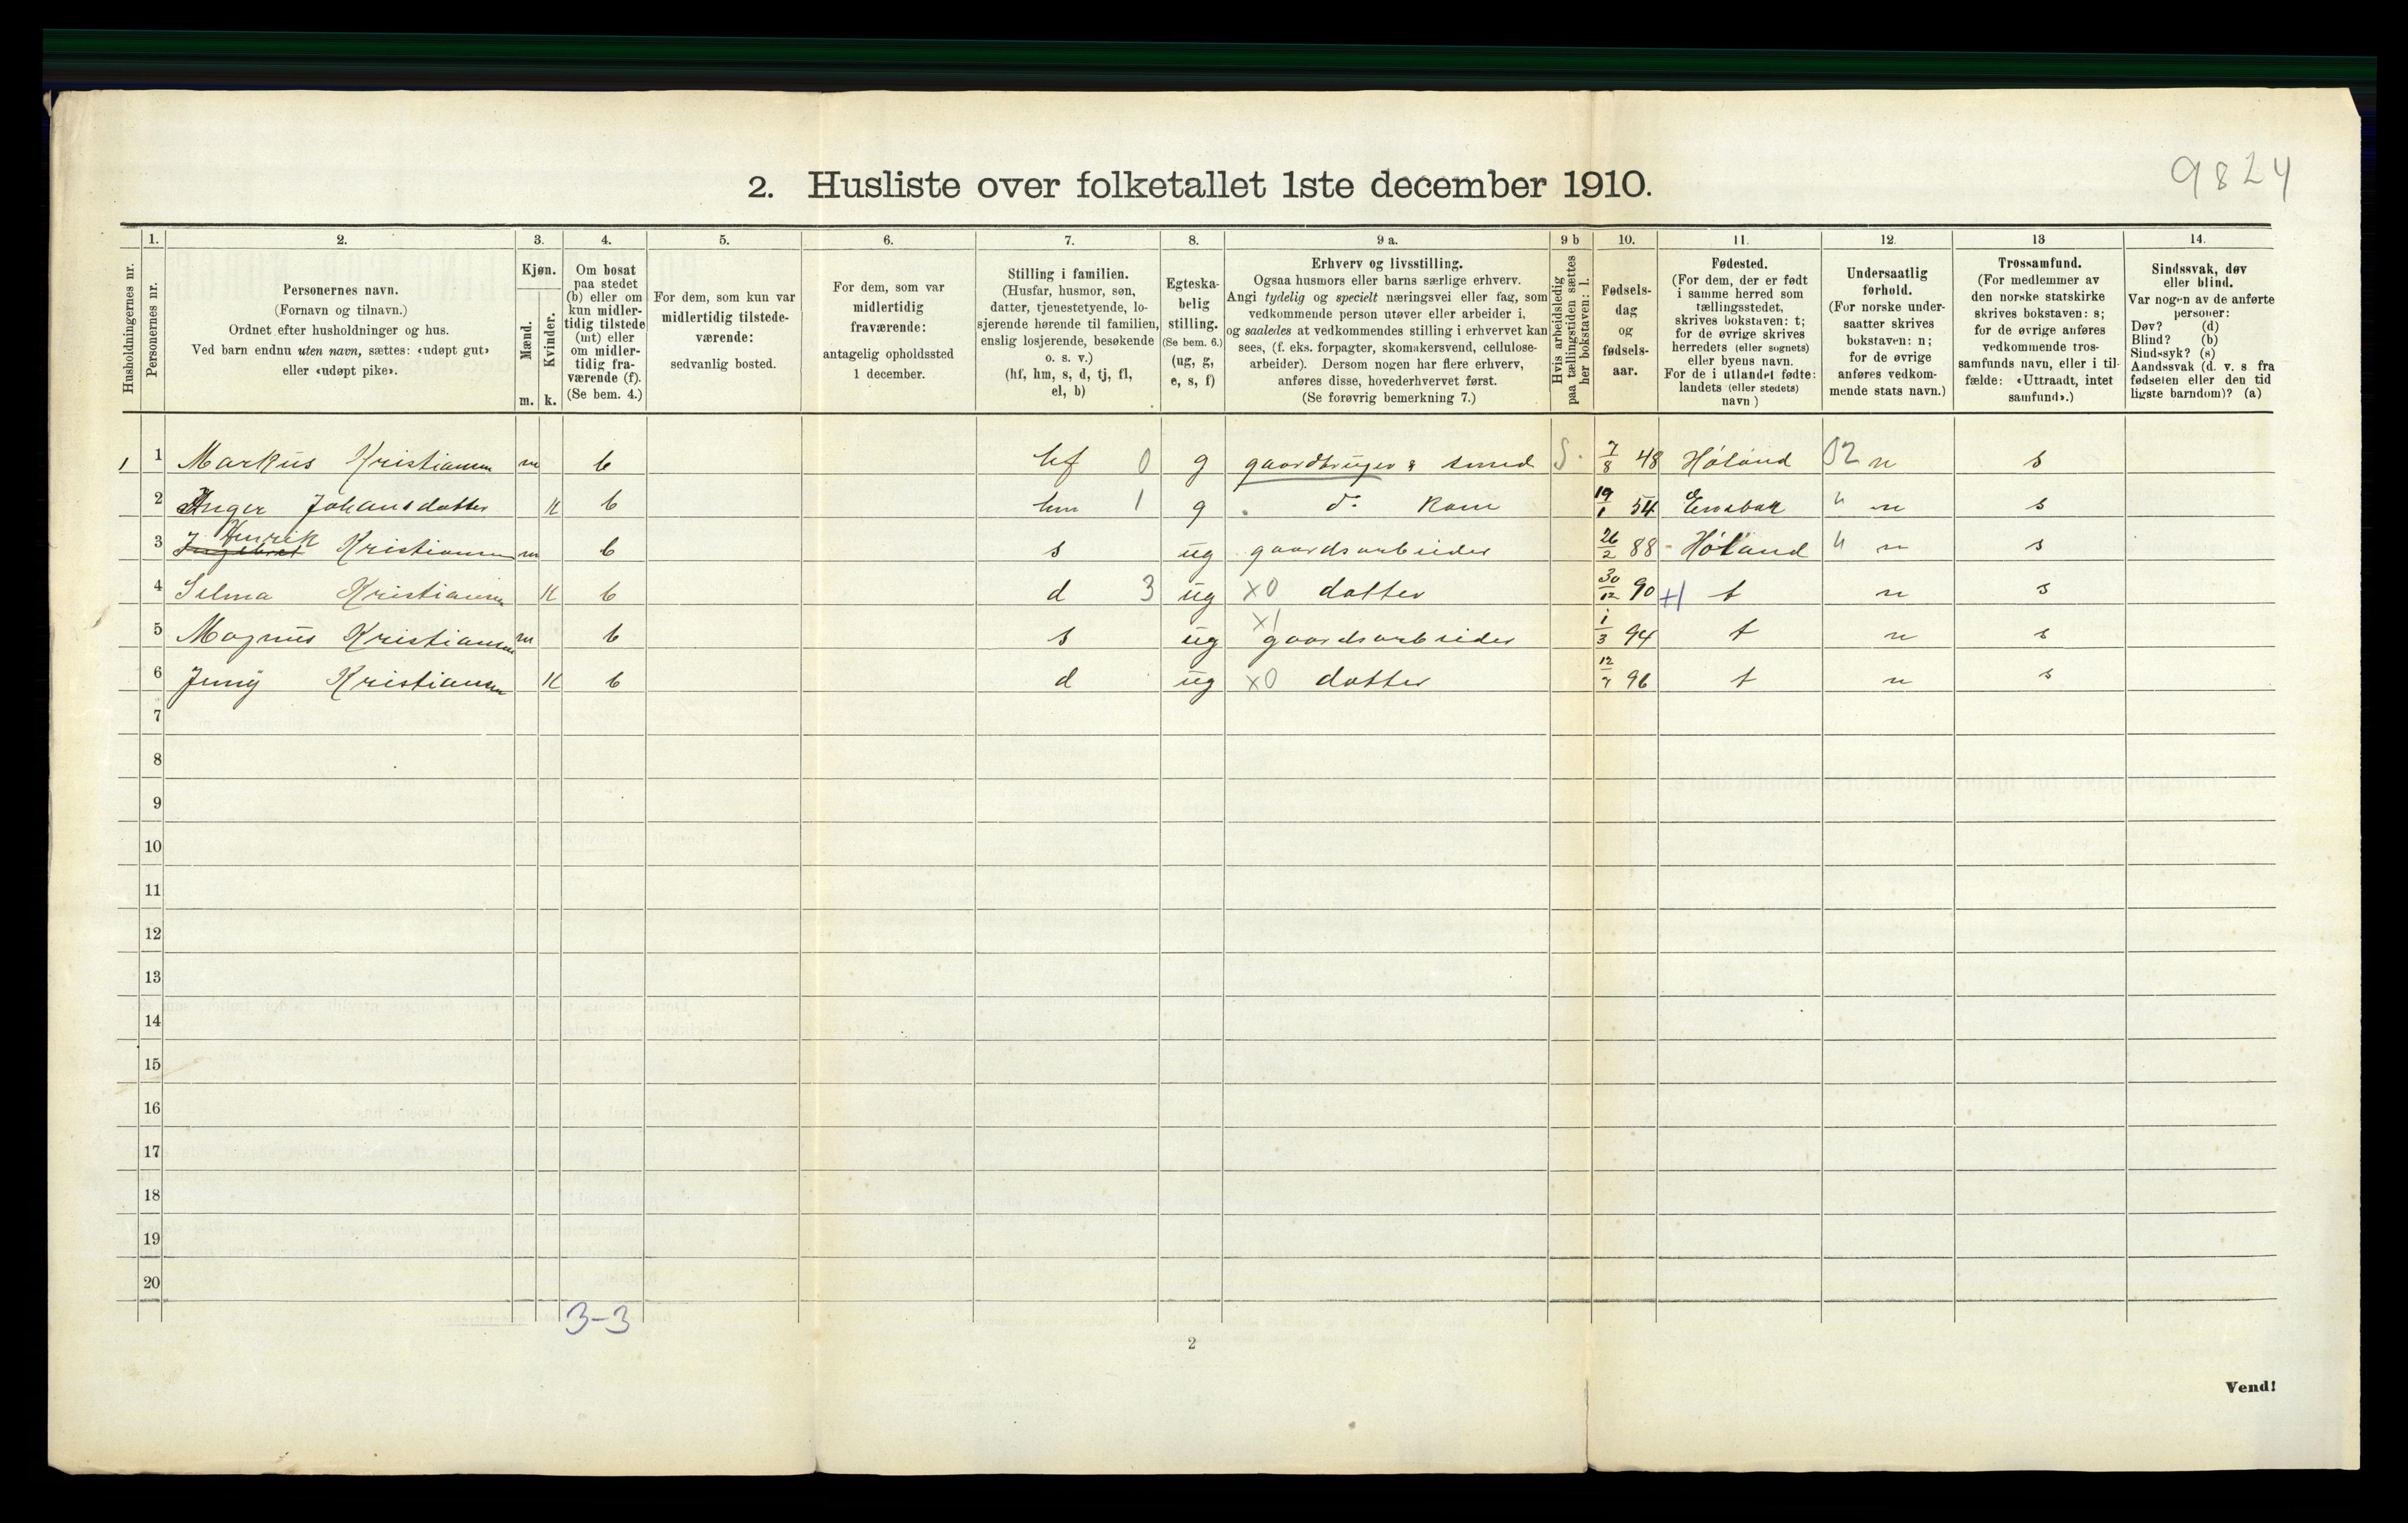 9824
2. Husliste over folketallet 1ste december 1910.
Husholdningernes nr.
1.
Personernes nr.
2.
Personernes navn.
(Fornavn og tilnavn.)
Ordnet efter husholdninger og hus.
Ved barn endnu uten navn, sættes: «udøpt gut»
eller «udøpt pike».
3.
Kjøn.
Mænd.
Kvinder.
m. k.
4.
Om bosat
paa stedet
(b) eller om
kun midler-
tidig tilstede
(mt) eller
om midler-
tidig fra-
værende (f).
(Se bem. 4.)
5.
For dem, som kun var
midlertidig tilstede-
værende:
sedvanlig bosted.
6.
For dem, som var
midlertidig
fraværende:
antagelig opholdssted
1 december.
7.
Stilling i familien.
(Husfar, husmor, søn,
datter, tjenestetyende, lo-
sjerende hørende til familien,
enslig losjerende, besøkende
o. s. v.)
(hf, hm, s, d, tj, fl,
el, b)
8.
Egteska-
belig
stilling.
(Se bem. 6.)
(ug, g,
e, s, f)
9 a.
Erhverv og livsstilling.
Ogsaa husmors eller barns særlige erhverv.
Angi tydelig og specielt næringsvei eller fag, som
vedkommende person utøver eller arbeider i,
og saaledes at vedkommendes stilling i erhvervet kan
sees, (f. eks. forpagter, skomakersvend, cellulose-
arbeider). Dersom nogen har flere erhverv,
anføres disse, hovederhvervet først.
(Se forøvrig bemerkning 7.)
9 b
Hvis arbeidsledig
paa tællingstiden sættes
her bokstaven: l.
10.
Fødsels-
dag
og
fødsels-
aar.
11.
Fødested.
(For dem, der er født
i samme herred som
tællingsstedet,
skrives bokstaven: t;
for de øvrige skrives
herredets (eller sognets)
eller byens navn.
For de i utlandet fødte:
landets (eller stedets)
navn )
12.
Undersaatlig
forhold.
(For norske under-
saatter skrives
bokstaven: n;
for de øvrige
anføres vedkom-
mende stats navn.)
13
Trossamfund.
(For medlemmer av
den norske statskirke
skrives bokstaven: s;
for de øvrige anføres
vedkommende tros-
samfunds navn, eller i til-
fælde: «Uttraadt, intet
samfund».)
14.
Sindssvak, døv
eller blind.
Var nogen av de anførte
personer:
Døv? (d)
Blind? (b)
Sindssyk? (s)
Aandssvak (d. v. s fra
fødselen eller den tid
ligste barndom)? (a)
1 1 Markus Kristiansen m b hf 0 g gaardbruger & smed S. 7/8 48 Høland 02 n s
2 Inger Johansdatter K b hm 1 g d. Kone 19/1 54 Enebak " n s
3 Henrik Kristiansen m b s ug gaardsarbeider 26/2 88 - Høland " n s
4 Selma Kristiansen K b d 3 ug x0 datter 30/12 90 +1 t n s
5 Magnus Kristiansen m b s ug x1 gaardsarbeider 1/3 94 t n s
6 Jenny Kristiansen K b d ug x0 datter 12/7 96 t n s
7
8
9
10
11
12
13
14
15
16
17
18
19
20
3-3
2
Vend!